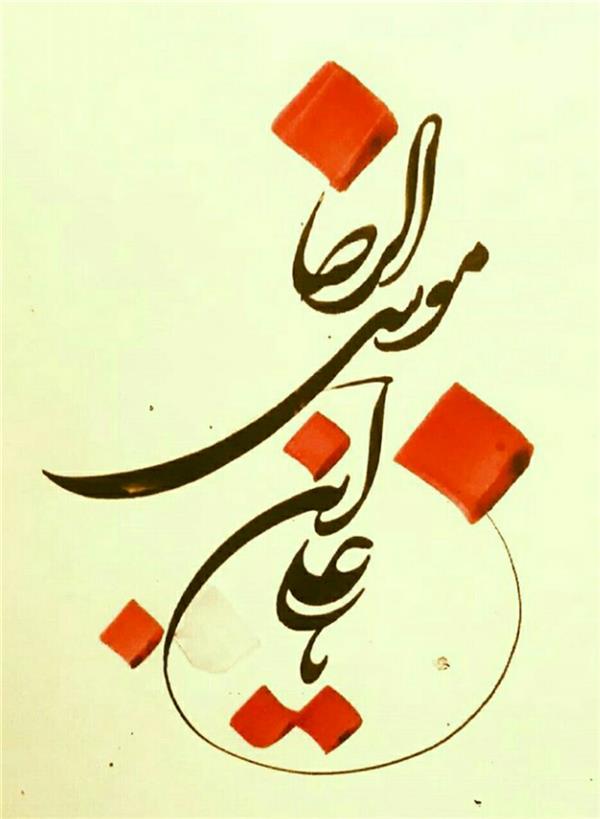 یا
علی
ابن
موسی
الرضا